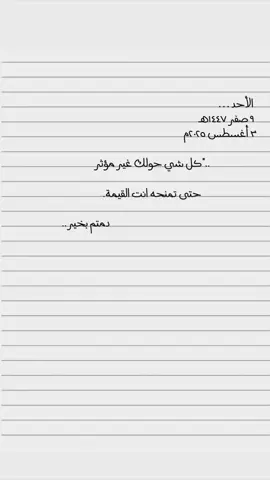 الأحد ...
٩ صفر ١٤٤٧هـ
٣ أغسطس ٢٠٢٥م
.."كل شي حولك غير مؤثر
حتى تمنحه انت القيمة.
دمتم بخير..